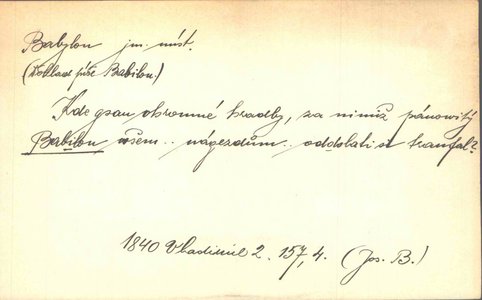 Babylon jm. míst.
(Doklad píše Babilon.)
Kde gsau ohromné hradby, za nimiž pánowitý
Babilon wšem .. nágezdům .. oddolati si traufal?
1840 Vlastimil 2. 157, 4. (Jos. B.)